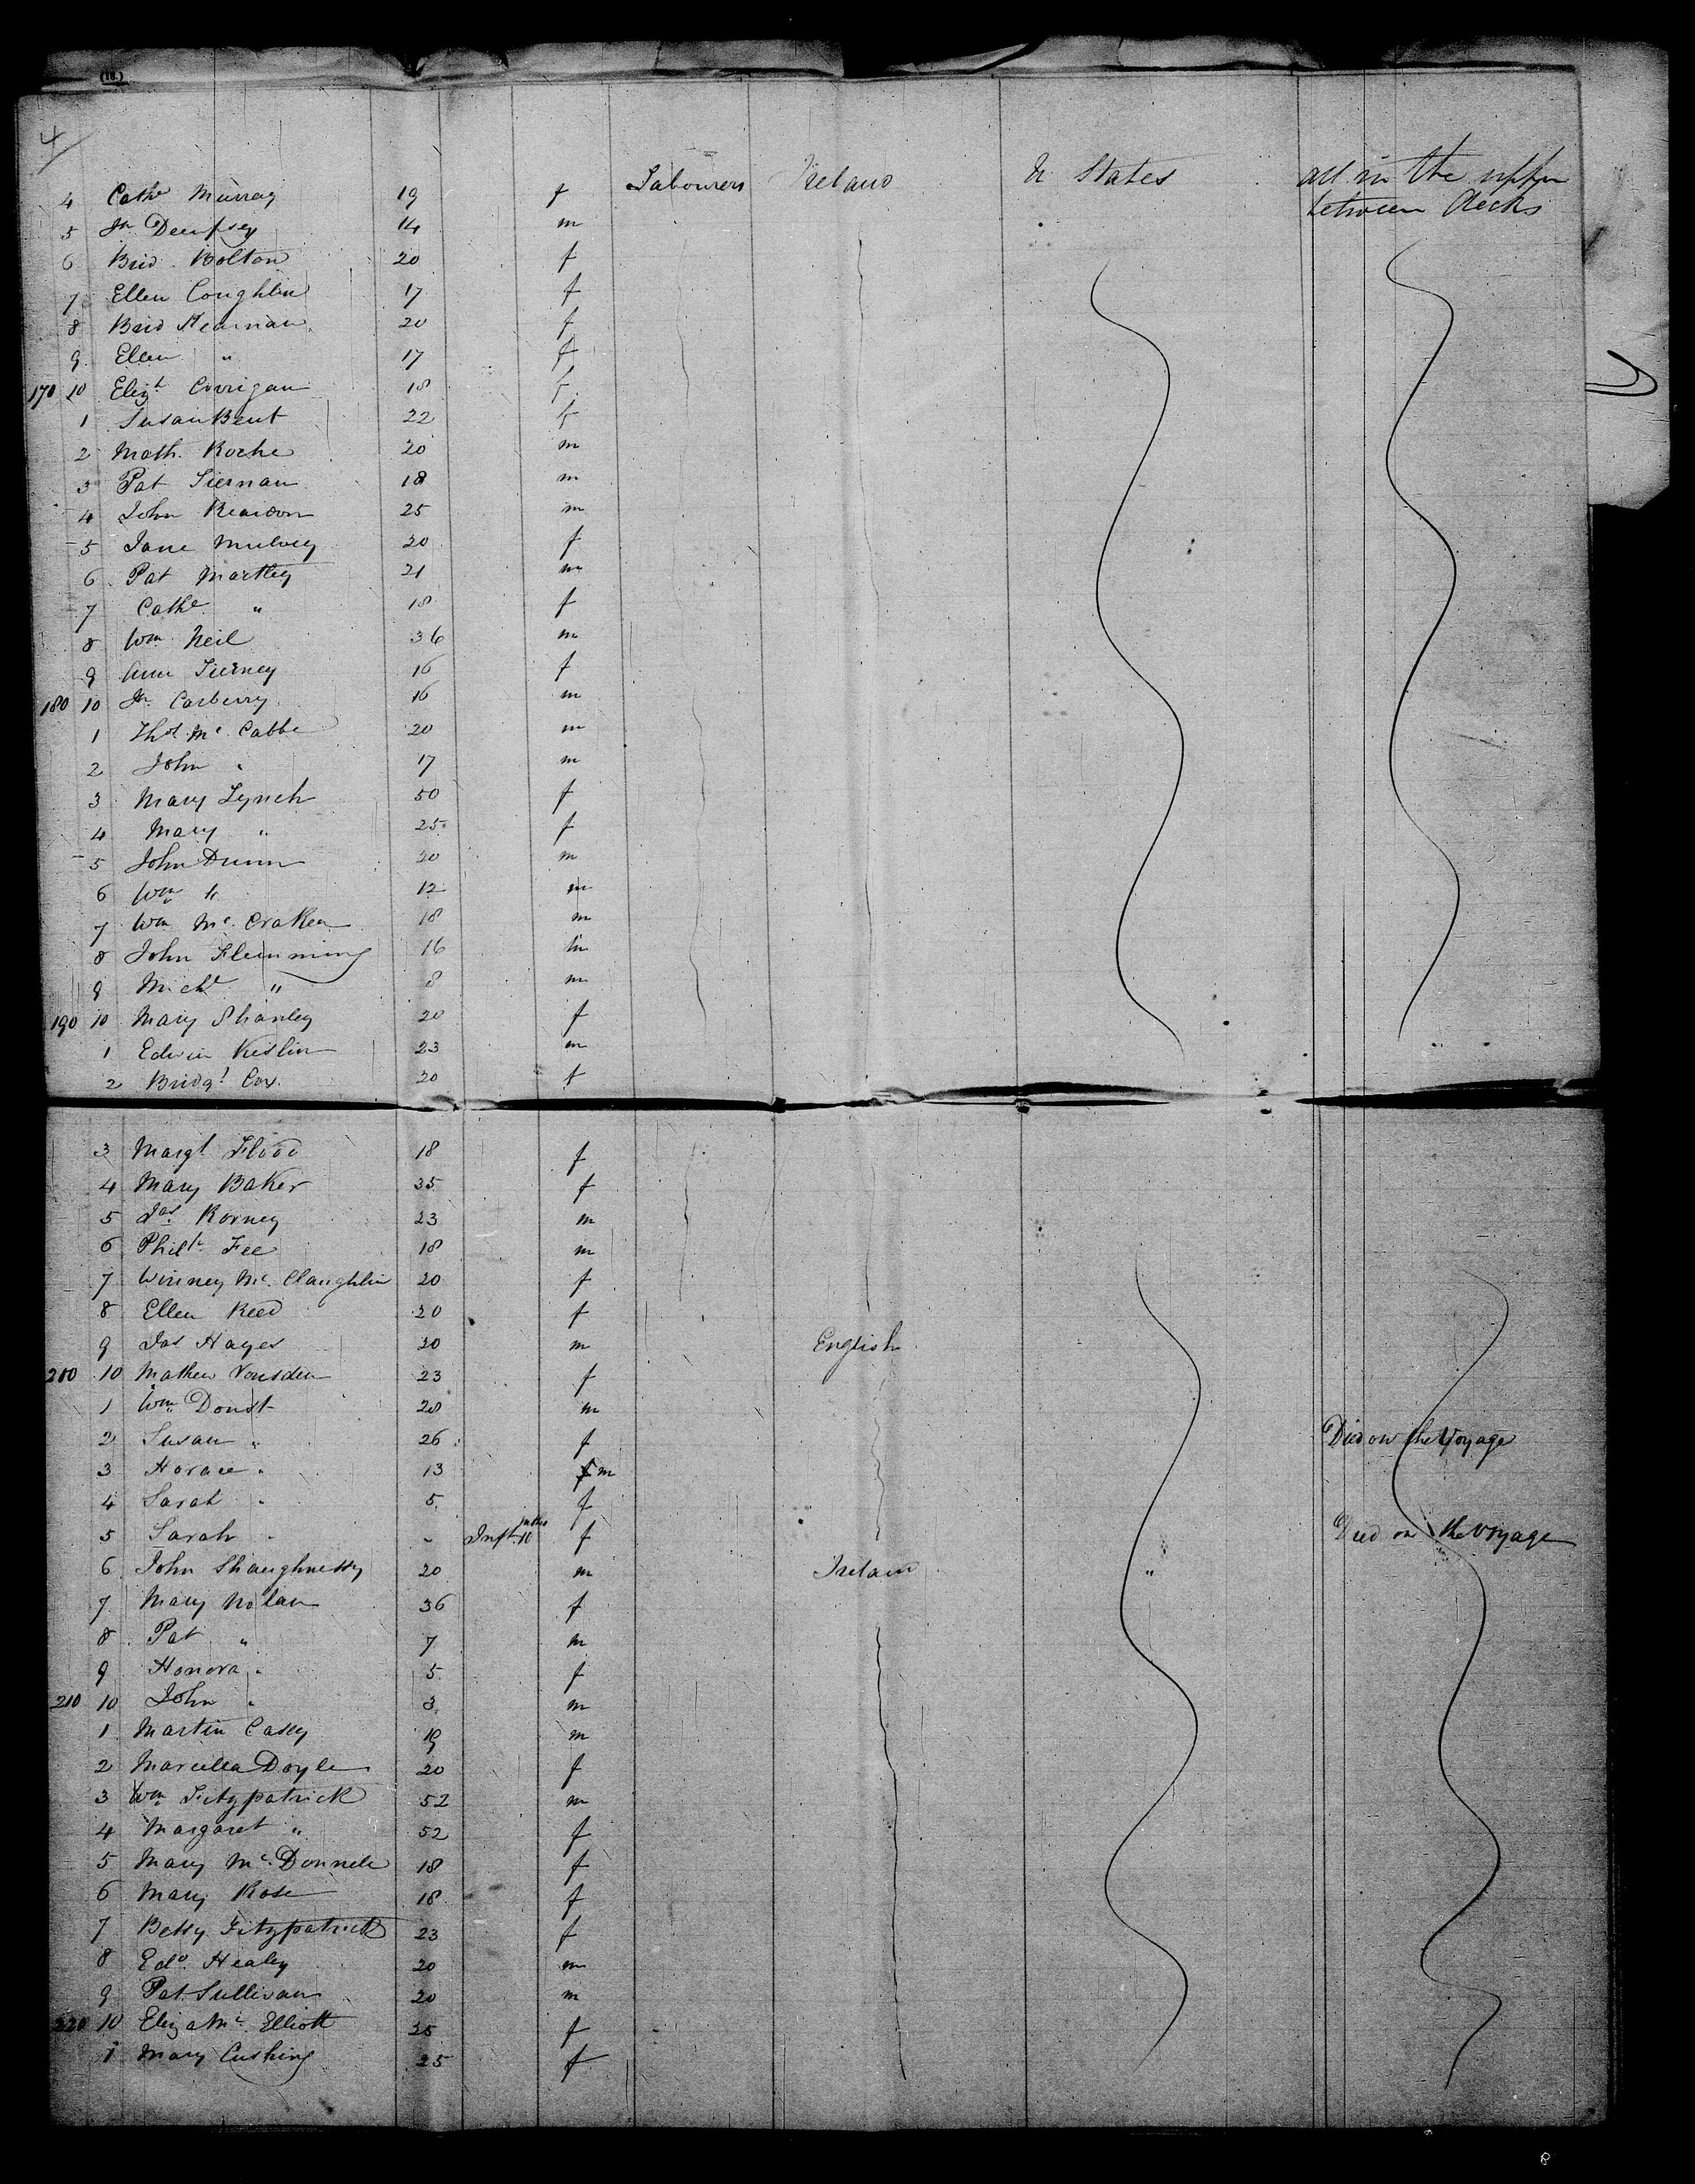 (18.)
4
4 Cathe Murray 19 f Labourers Ireland U States all in the upper
between decks
5 Jn Dempsey 14 m
6 Brid Bolton 20 f
7 Ellen Coughlin 17 f
8 Brid Kearnan 20 f
9 Ellen " 17 f
170 10 Elizt Corrigan 18 f
1 Susan Bent 22 f
2 Math. Roche 20 m
3 Pat Tiernan 18 m
4 John Reardon 25 m
5 Jane Mulvey 20 f
6 Pat Martley 21 m
7 Cathe " 18 f
8 Wm Neil 36 m
9 Ann Tierney 16 f
180 10 Jn Carberry 16 m
1 Thos Mc Cabbe 20 m
2 John " 17 m
3 Mary Lynch 50 f
4 Mary " 25 f
5 John Dunn 20 m
6 Wm " 12 m
7 Wm Mc Craken 18 m
8 John Flemming 16 m
9 Michl " 8 m
190 10 Mary Shanley 20 f
1 Edwin Kislin 23 m
2 Bridgt Cox 20 f
3 Margt Flood 18 f
4 Mary Baker 35 f
5 Jas Rorney 23 m
6 Philp Fee 18 m
7 Winney Mc Claughlin 20 f
8 Ellen Reed 20 f
9 Jas Hayes 20 m English
200 10 Mathew Vousden 23 f
1 Wm Doust 28 m
2 Susan " 26 f Died on the Voyage
3 Horace " 13 f m
4 Sarah " 5 f
5 Sarah " - Inft 10 mths f Died on the Voyage
6 John Shaughnessy 20 m Ireland "
7 Mary Nolan 36 f
8 Pat " 7 m
9 Honora " 5 f
210 10 John " 3 m
1 Martin Casey 19 m
2 Marcella Doyle 20 f
3 Wm Fitzpatrick 52 m
4 Margaret " 52 f
5 Mary Mc Donnele 18 f
6 Mary Rose 18 f
7 Bessy Fitzpatrick 23 f
8 Edd Healey 20 m
9 Pat Sullivan 20 m
220 10 Eliza Mc Elliott 25 f
1 Mary Cushing 25 f